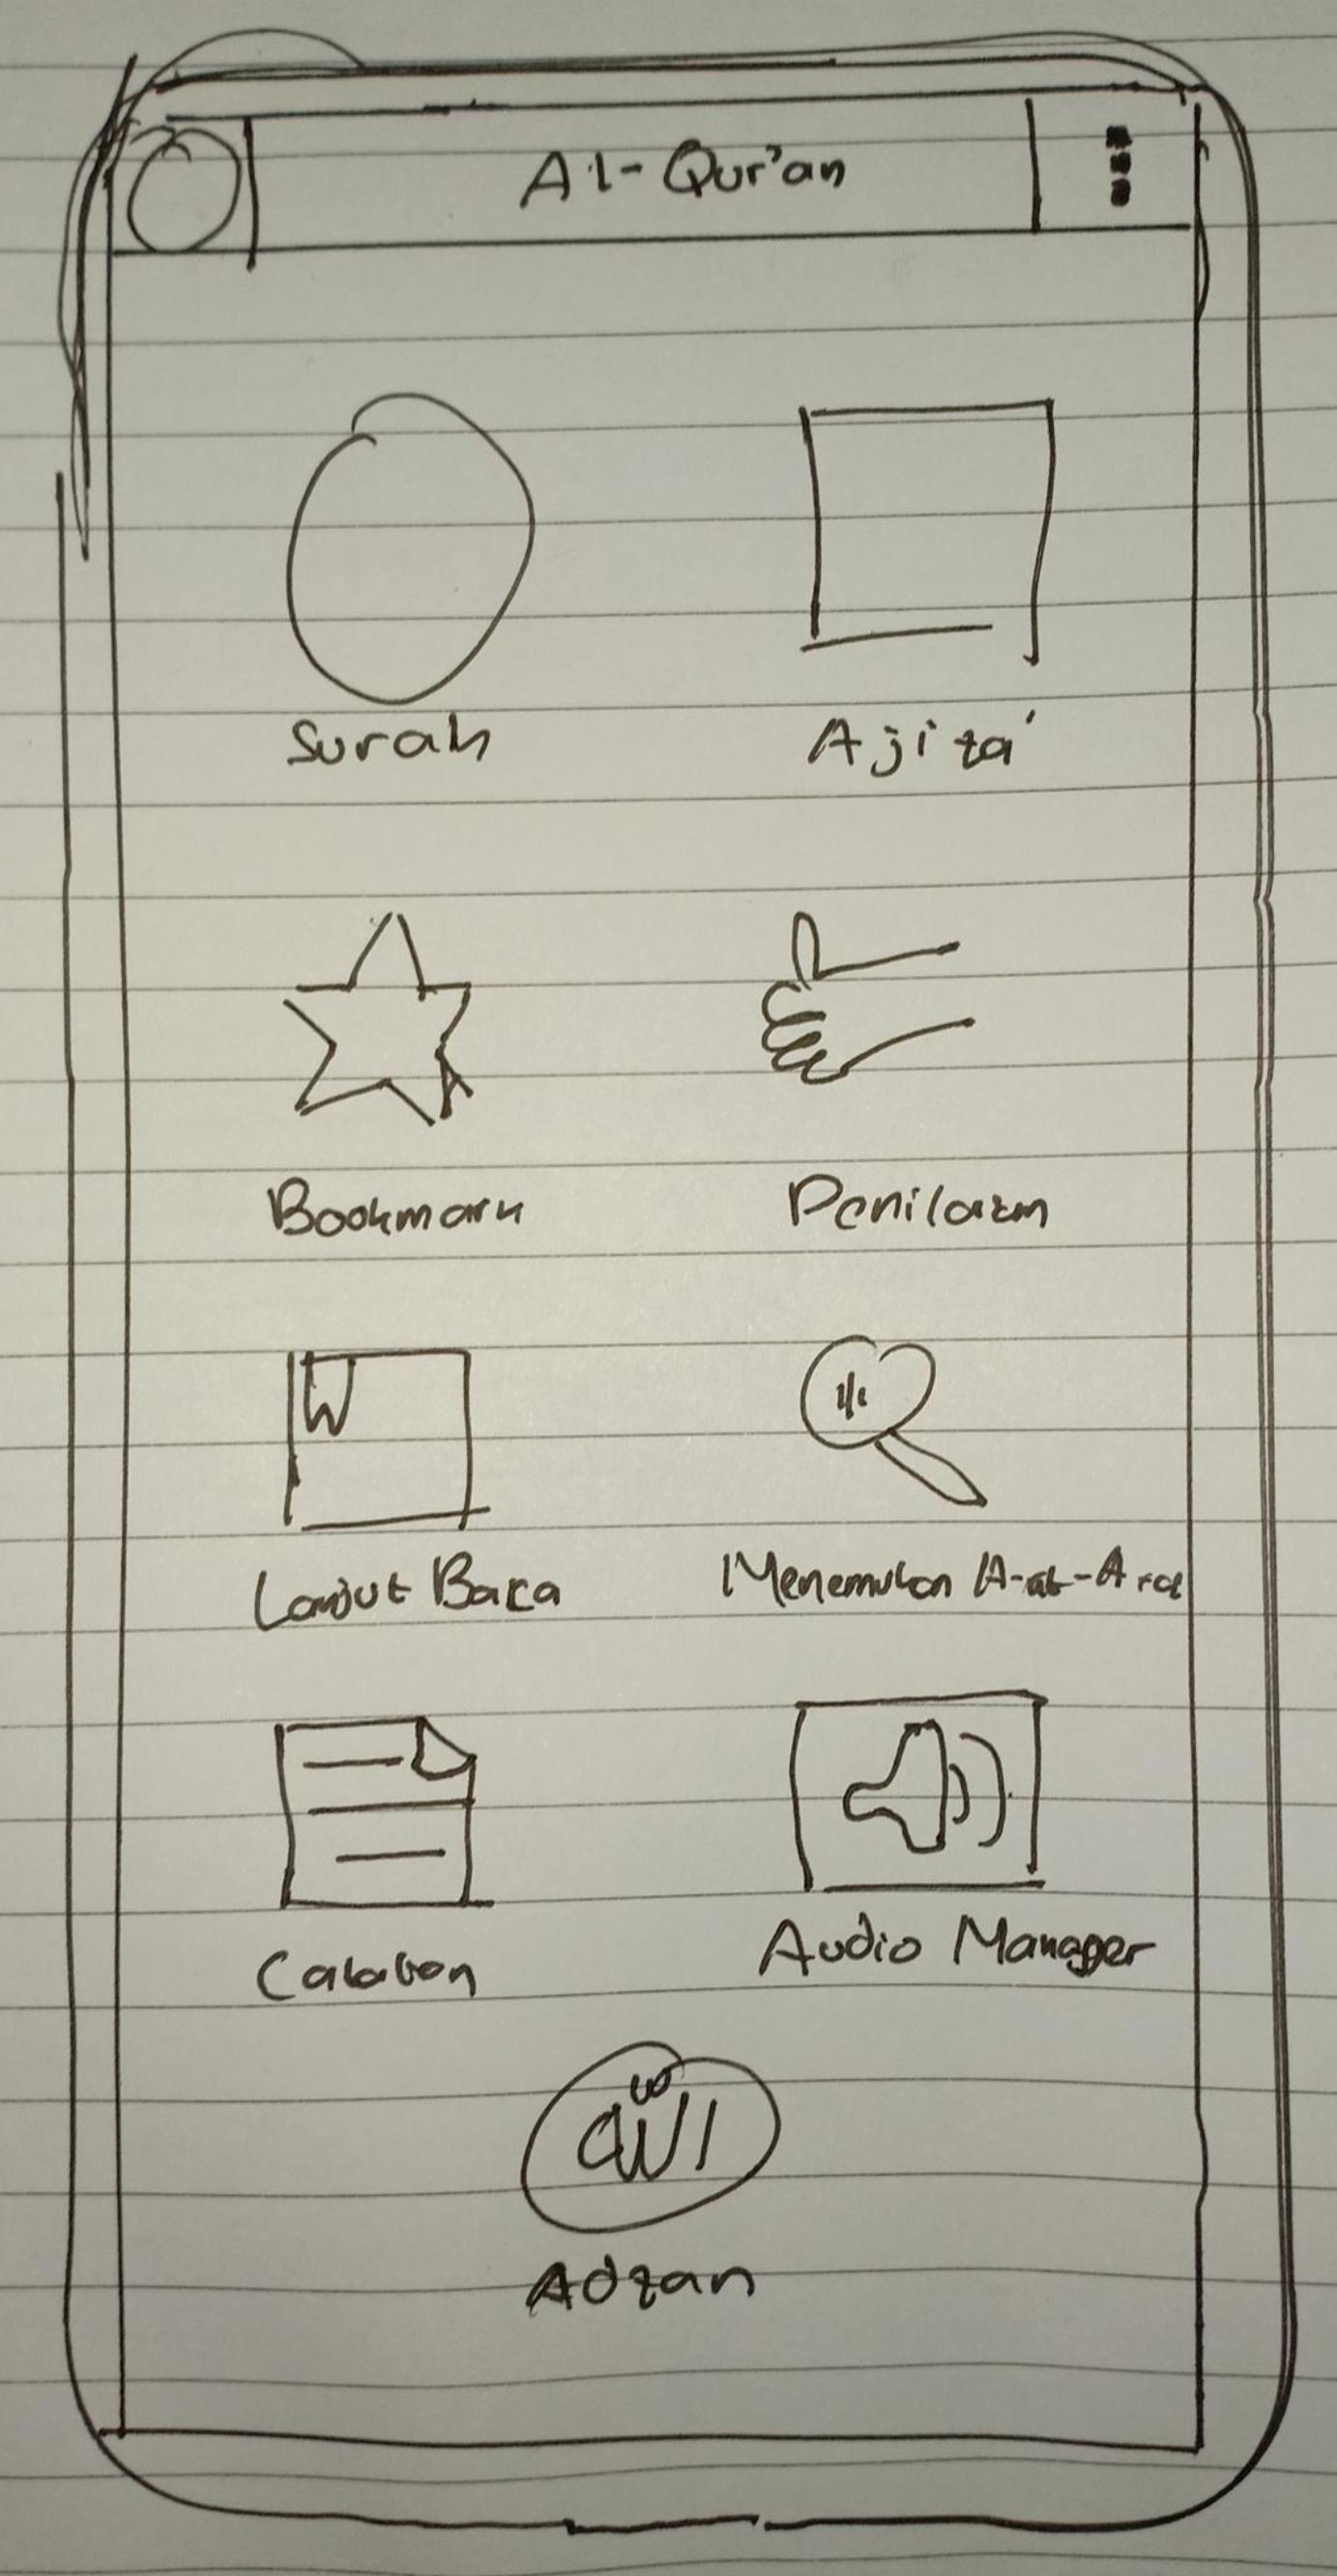 Al-Qur'an
Surah
Ajiza'
Bookmark
Penilaian
Lanjut Baca
Menemukan
Catatan
Audio Manager
الله
Adzan